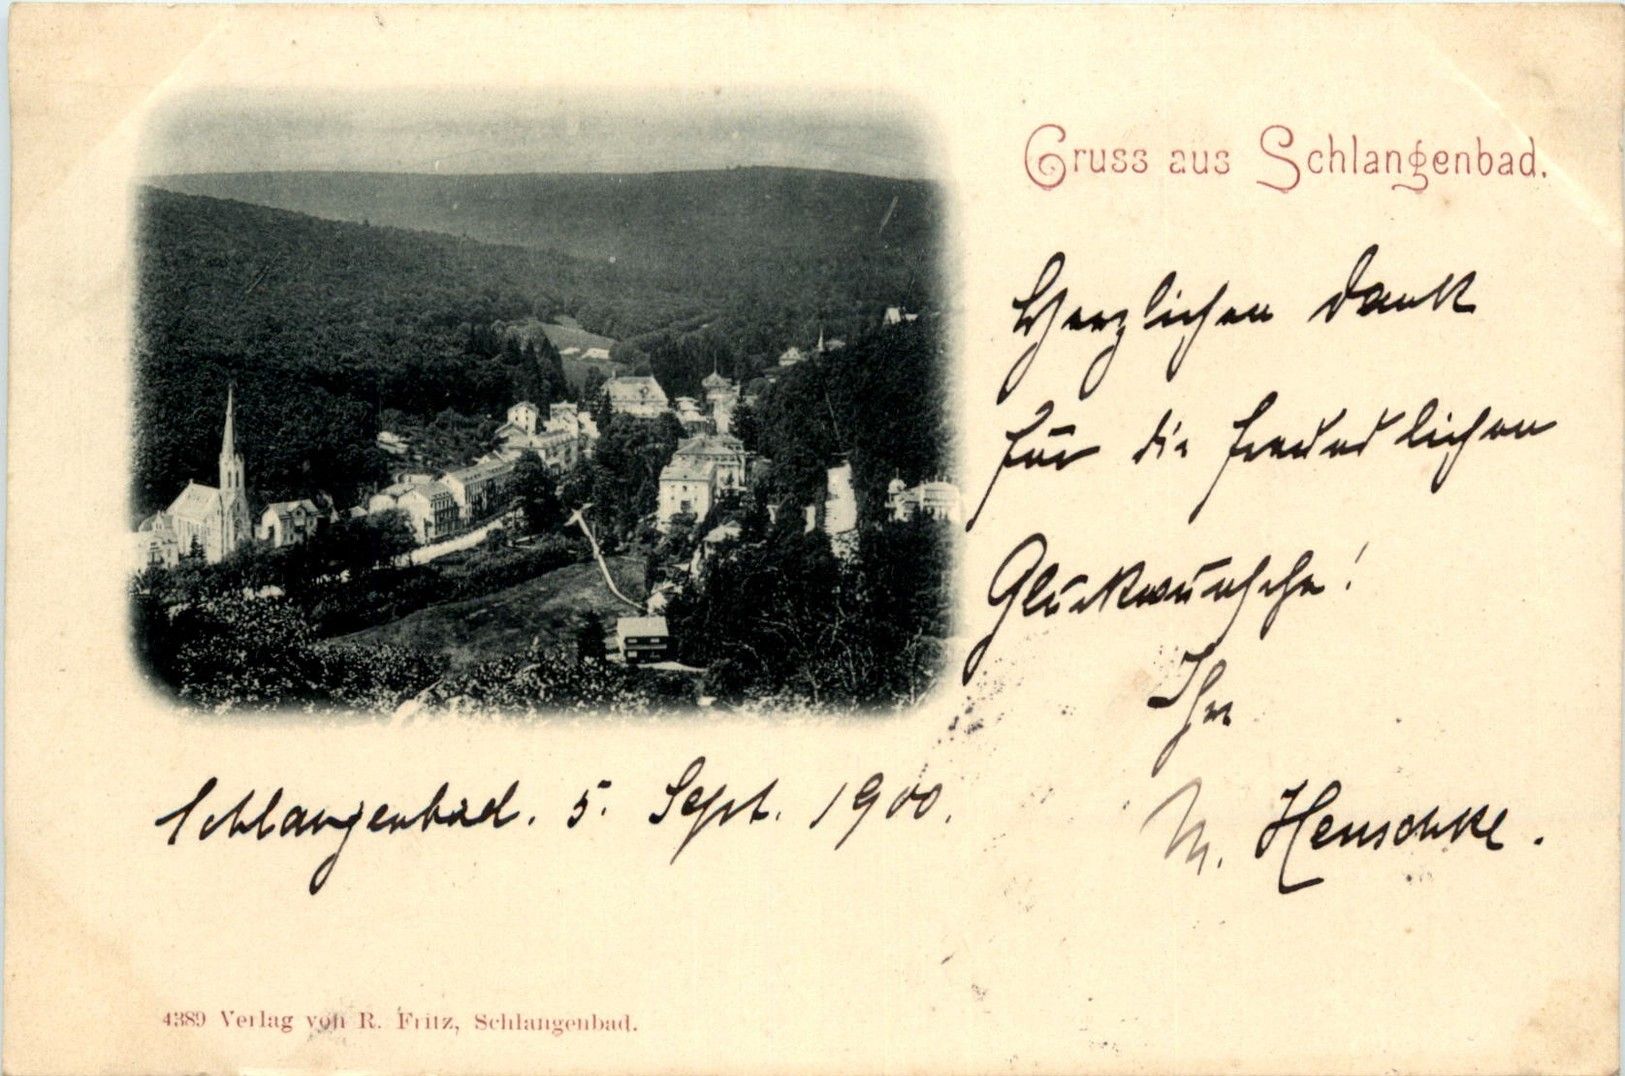 Gruss aus Schlangenbad.
Herzlichen Dank
für die freundlichen
Glückwünsche!
Ihr
M. Henschke.
Schlangenbad. 5. Sept. 1900.
4389 Verlag von R. Fritz, Schlangenbad.